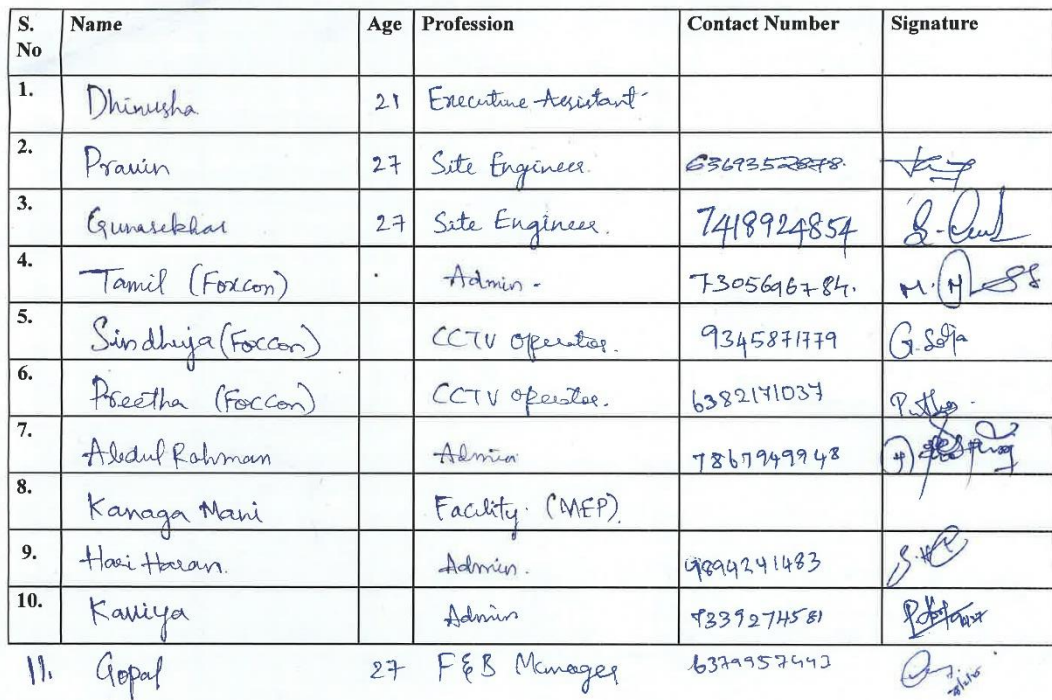 S. No Name Age Profession Contact Number Signature
1. Dhinusha 21 Executive Assistant
2. Pravin 27 Site Engineer. 6369352878.
3. Gunasekhar 27 Site Engineer. 7418924854
4. Tamil (Foxcon) Admin - 7305696784.
5. Sindhuja (Foxcon) CCTV operator. 9345871779
6. Preetha (Foxcon) CCTV operator. 6382171037
7. Abdul Rahman Admin 7867949948
8. Kanaga Mani Facility (MEP)
9. Hari Haran. Admin. 9894241483
10. Kaviya Admin 7339274581
11. Gopal 27 F&B Manager 6379957443